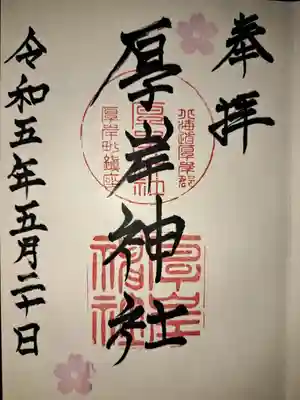 奉拝
厚岸神社
北海道厚岸郡
厚岸町鎮座
令和五年五月二十日